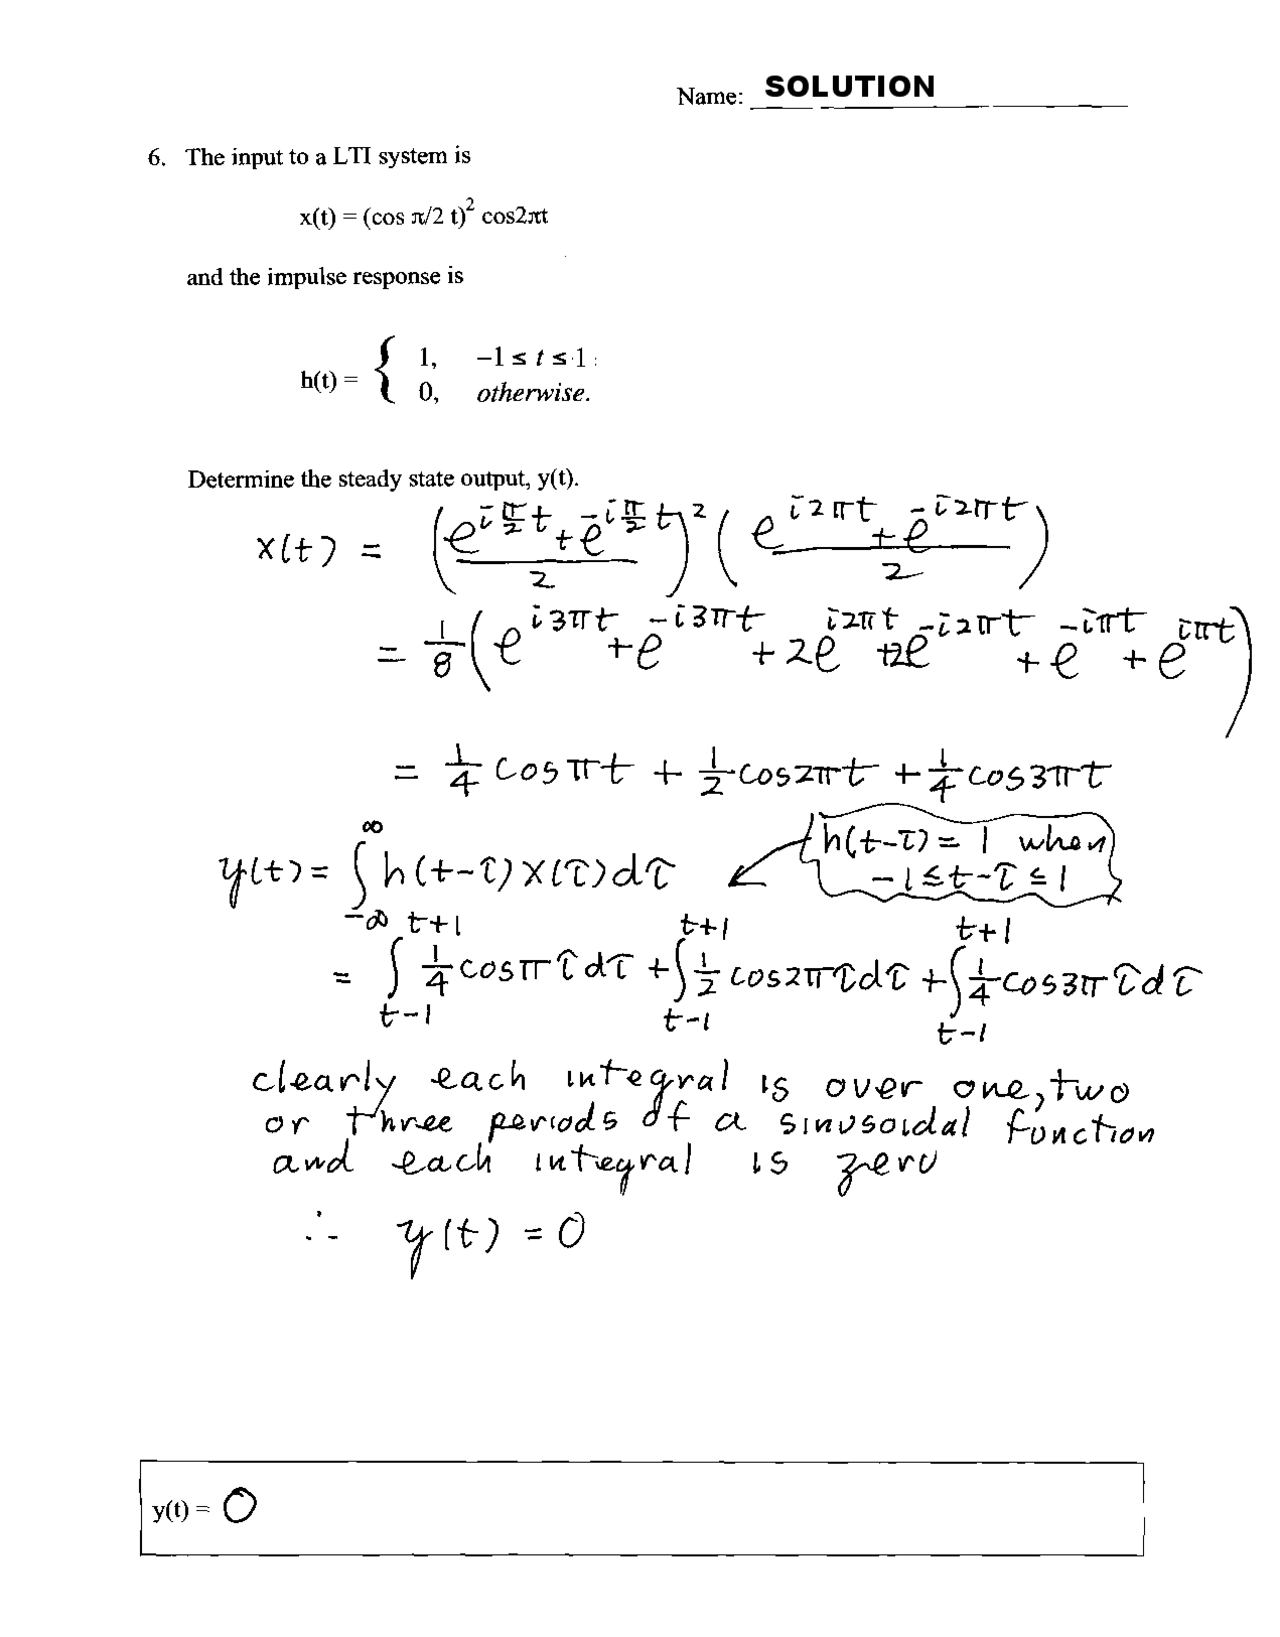 Name: SOLUTION
6. The input to a LTI system is
x(t) = (cos π/2 t)² cos2πt
and the impulse response is
h(t) = { 1, −1 ≤ t ≤ 1
0, otherwise.
Determine the steady state output, y(t).
x(t) = ((e^{i π/2 t} + e^{-i π/2 t})/2)² ((e^{i2πt} + e^{-i2πt})/2)
= 1/8 (e^{i3πt} + e^{-i3πt} + 2e^{i2πt} + 2e^{-i2πt} + e^{-iπt} + e^{iπt})
= 1/4 cosπt + 1/2 cos2πt + 1/4 cos3πt
y(t) = ∫_{-∞}^{∞} h(t-τ) x(τ) dτ
h(t-τ) = 1 when
-1 ≤ t-τ ≤ 1
= ∫_{t-1}^{t+1} 1/4 cosπτdτ + ∫_{t-1}^{t+1} 1/2 cos2πτdτ + ∫_{t-1}^{t+1} 1/4 cos3πτdτ
clearly each integral is over one, two
or three periods of a sinusoidal function
and each integral is zero
∴ y(t) = 0
y(t) = 0